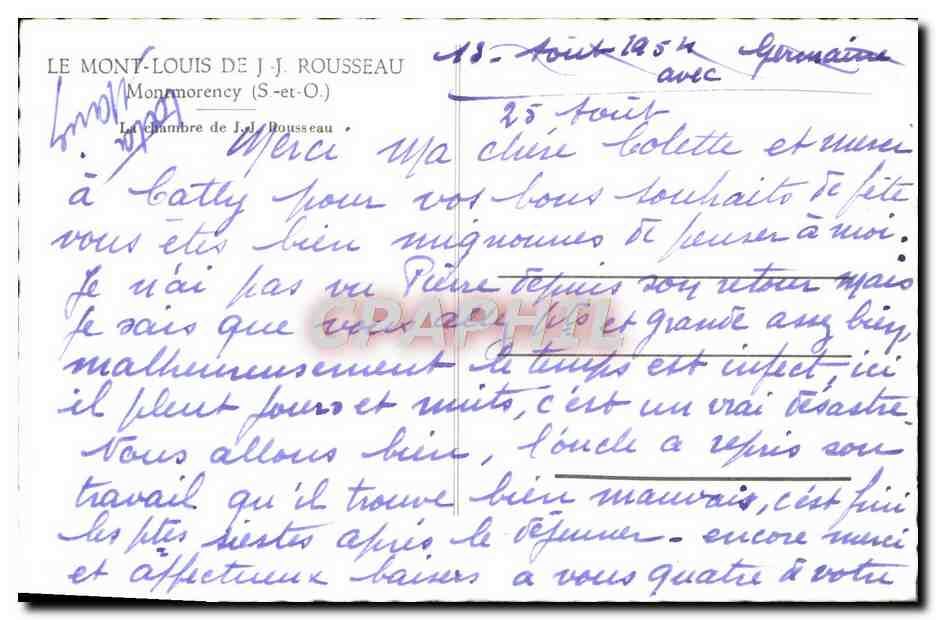 LE MONT-LOUIS DE J.-J. ROUSSEAU
Montmorency (S.-et-O.)
La chambre de J.-J. Rousseau
18 - Août 1954 Germaine
avec
25 Août
Merci Ma chère Colette et merci
à Catly pour vos bons souhaits de fête
vous êtes bien mignonnes de penser à moi.
Je n'ai pas vu Pierre depuis son retour Mais
je sais que vous pts et grands assez bien,
malheureusement le temps est infect, ici
il pleut jours et nuits, c'est un vrai désastre
Nous allons bien, l'oncle a repris son
travail qu'il trouve bien mauvais, c'est fini
les ptes siestes après le déjeuner - encore merci
et affectueux baisers a vous quatre à votre
CPARPHIL